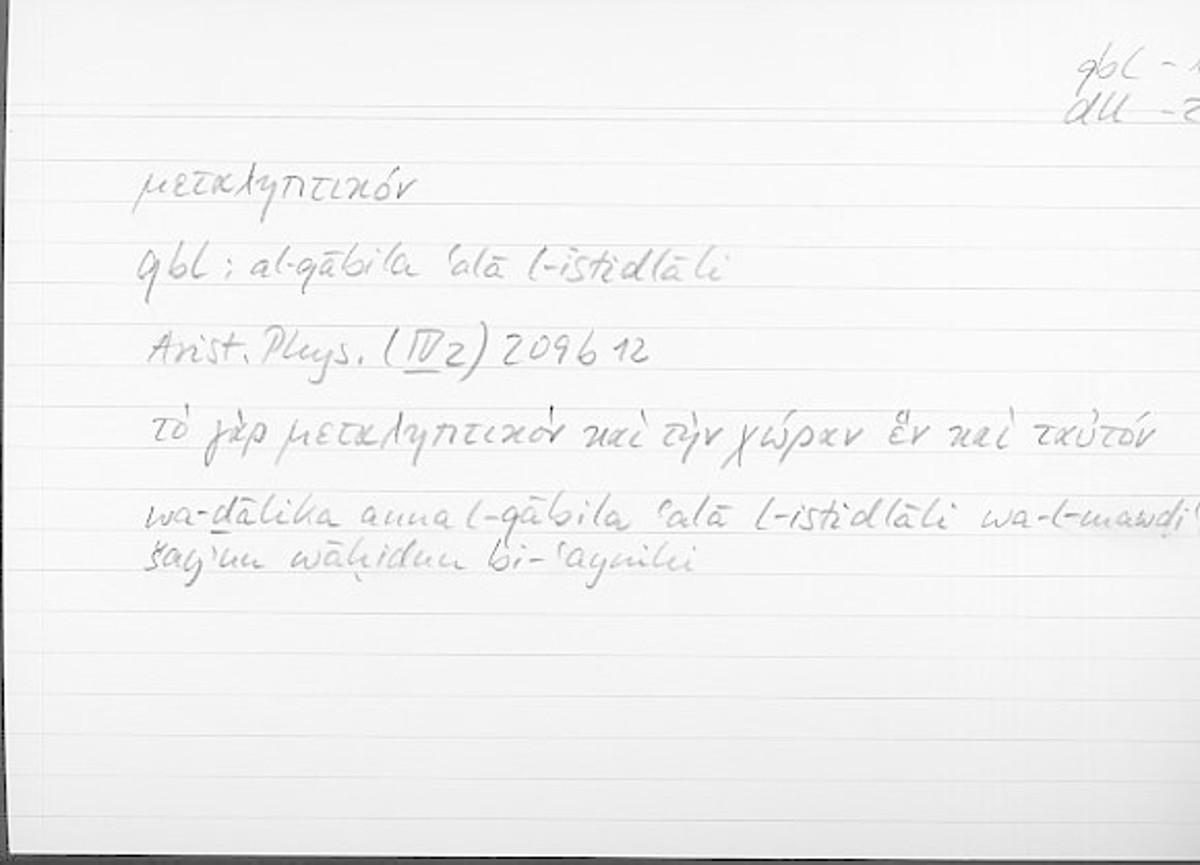 qbl - 1
dll - 2
μεταληπτικόν
qbl : al-qābila ʿalā l-istidlāli
Arist. Phys. (IV 2) 209 b 12
τὸ γὰρ μεταληπτικὸν καὶ τὴν χώραν ἓν καὶ ταὐτόν
wa-ḏālika anna l-qābila ʿalā l-istidlāli wa-l-mawḍiʿ
šayʾun wāḥidun bi-ʿaynihi